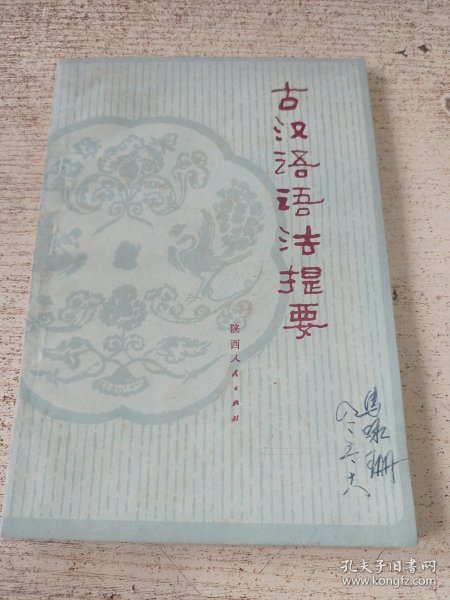 古汉语语法提要
陕西人民出版社
八二、五、十六
孔夫子旧书网
www.kongfz.com